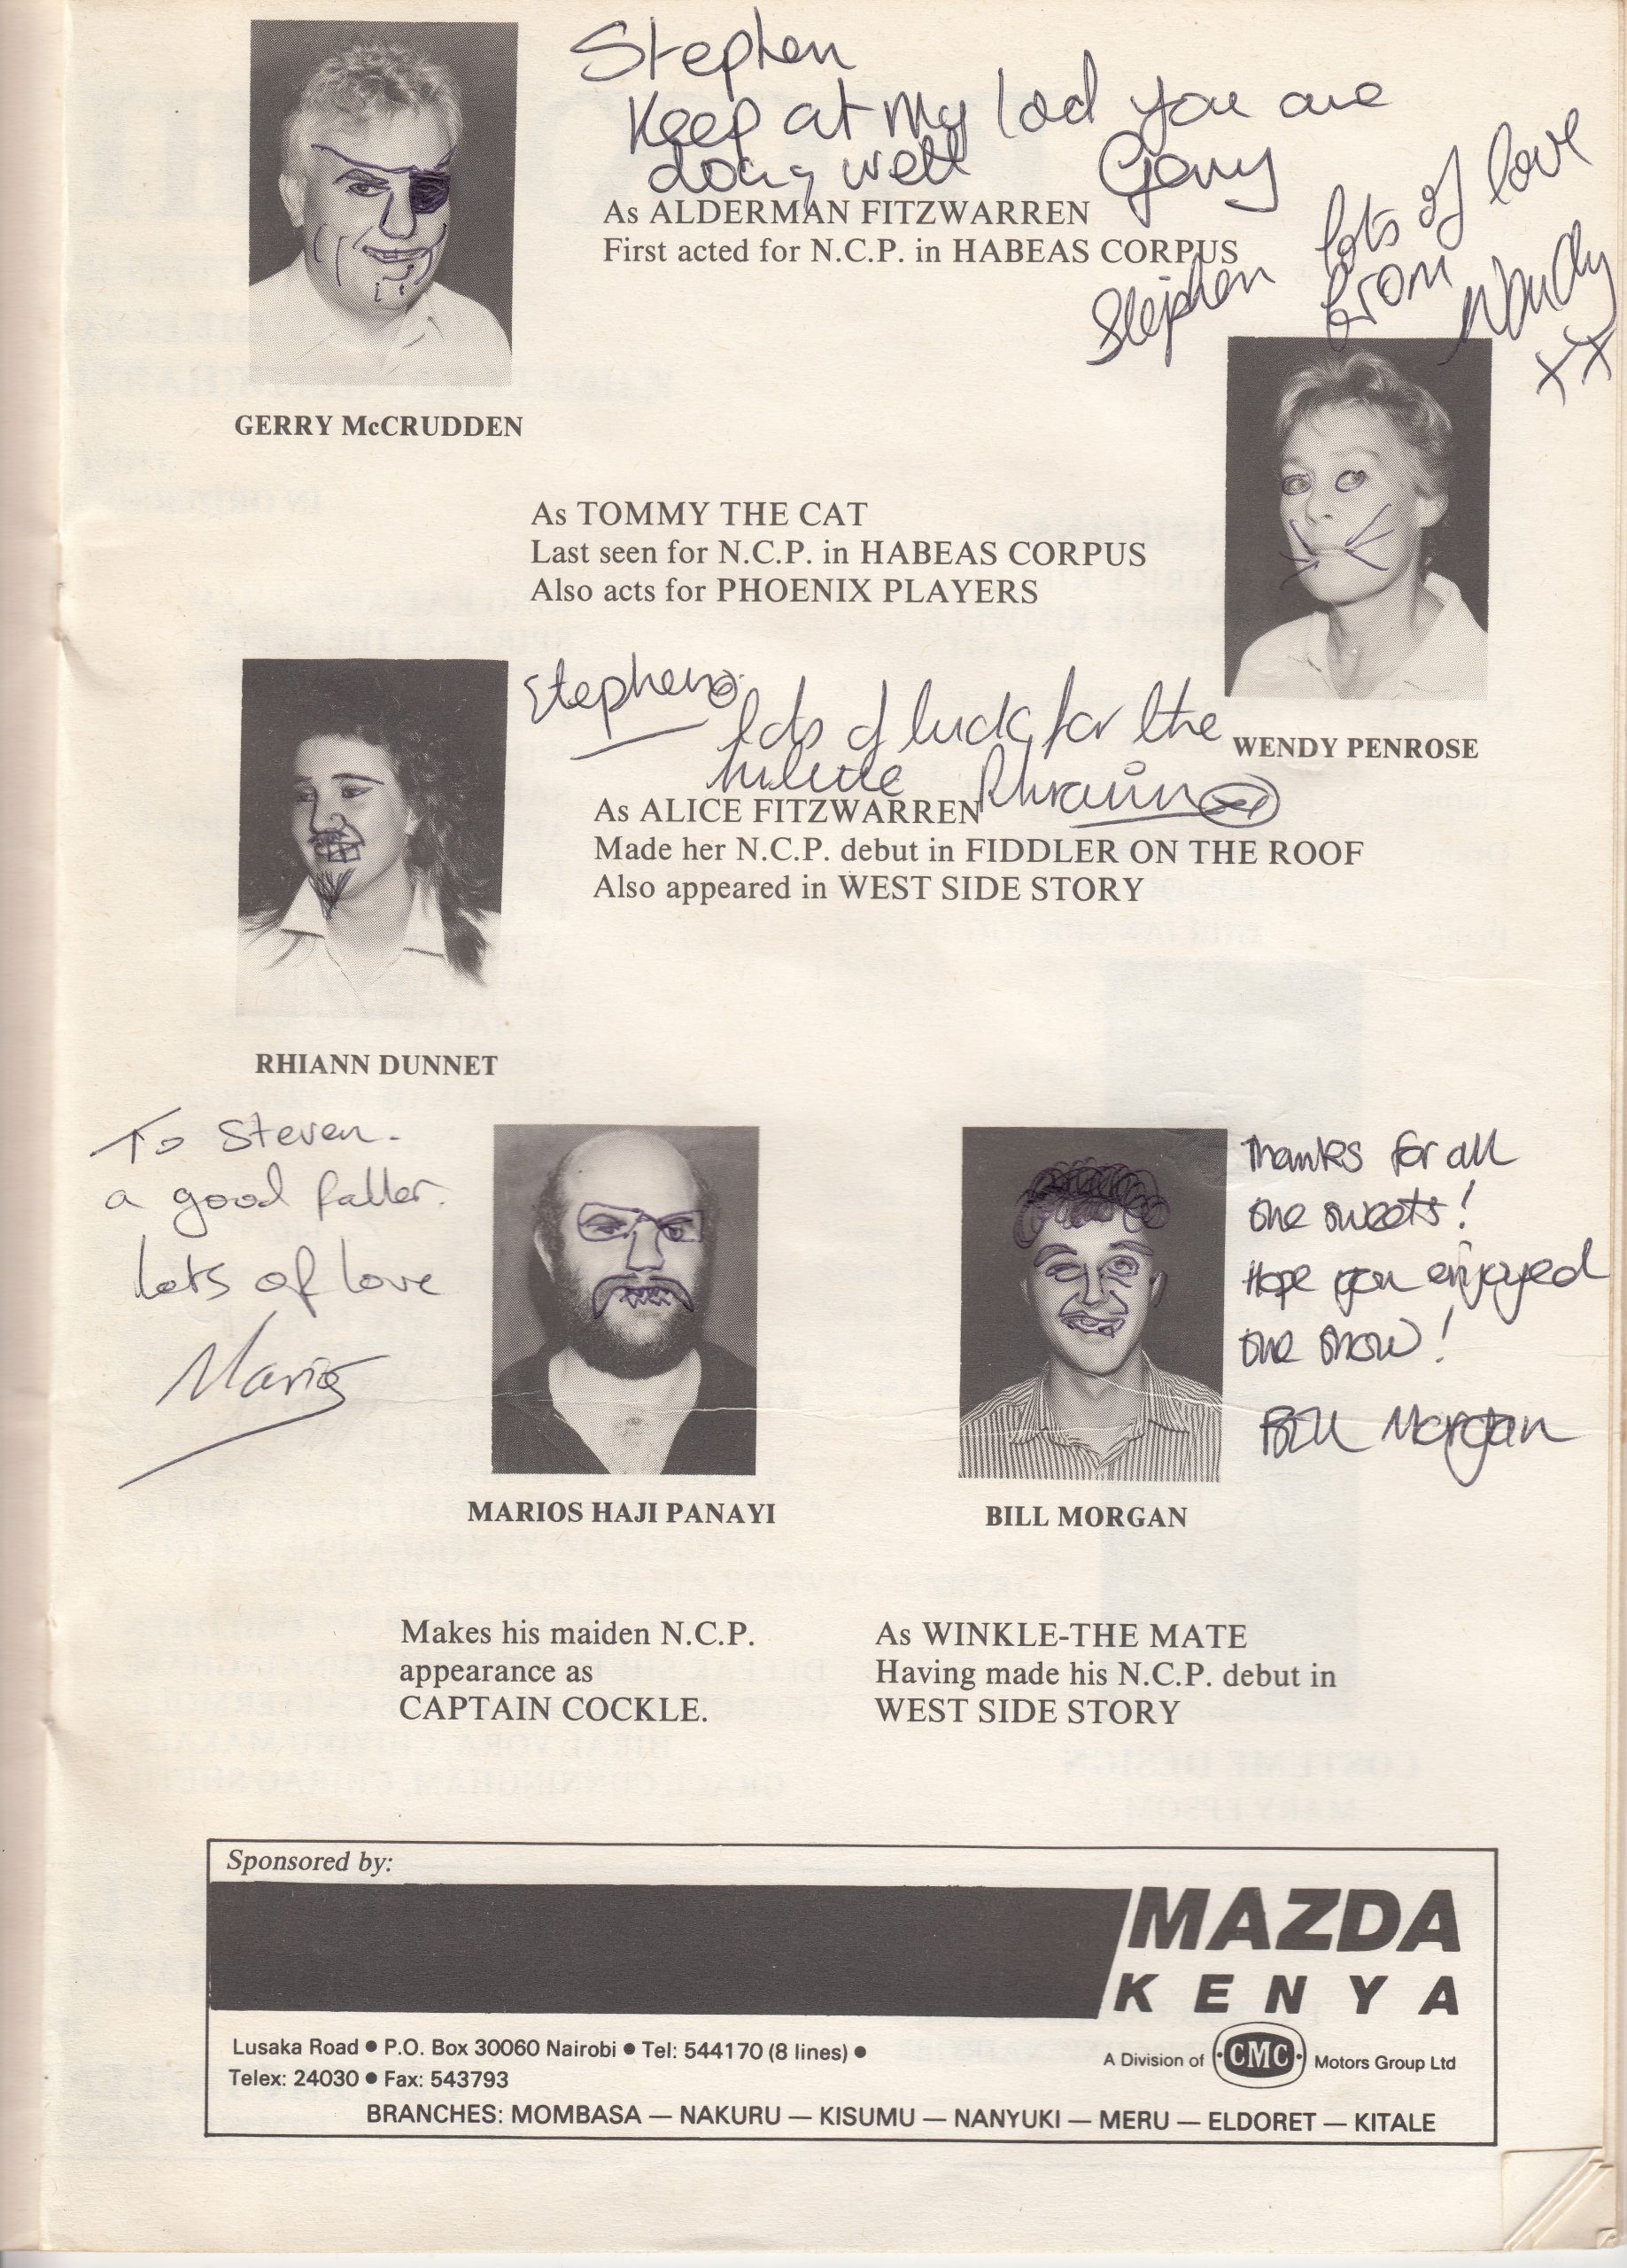 Stephen
Keep at my lad you are
doing well Gerry
As ALDERMAN FITZWARREN
First acted for N.C.P. in HABEAS CORPUS
GERRY McCRUDDEN
Stephen lots of love
from Wendy
xx
As TOMMY THE CAT
Last seen for N.C.P. in HABEAS CORPUS
Also acts for PHOENIX PLAYERS
WENDY PENROSE
Stephen
lots of luck for the
Rhiann
As ALICE FITZWARREN
Made her N.C.P. debut in FIDDLER ON THE ROOF
Also appeared in WEST SIDE STORY
RHIANN DUNNET
To Steven.
a good faller.
lots of love
Marios
MARIOS HAJI PANAYI
Makes his maiden N.C.P.
appearance as
CAPTAIN COCKLE.
Thanks for all
the sweets!
Hope you enjoyed
the show!
Bill Morgan
BILL MORGAN
As WINKLE-THE MATE
Having made his N.C.P. debut in
WEST SIDE STORY
Sponsored by:
MAZDA
KENYA
Lusaka Road ● P.O. Box 30060 Nairobi ● Tel: 544170 (8 lines) ●
Telex: 24030 ● Fax: 543793
A Division of CMC Motors Group Ltd
BRANCHES: MOMBASA — NAKURU — KISUMU — NANYUKI — MERU — ELDORET — KITALE